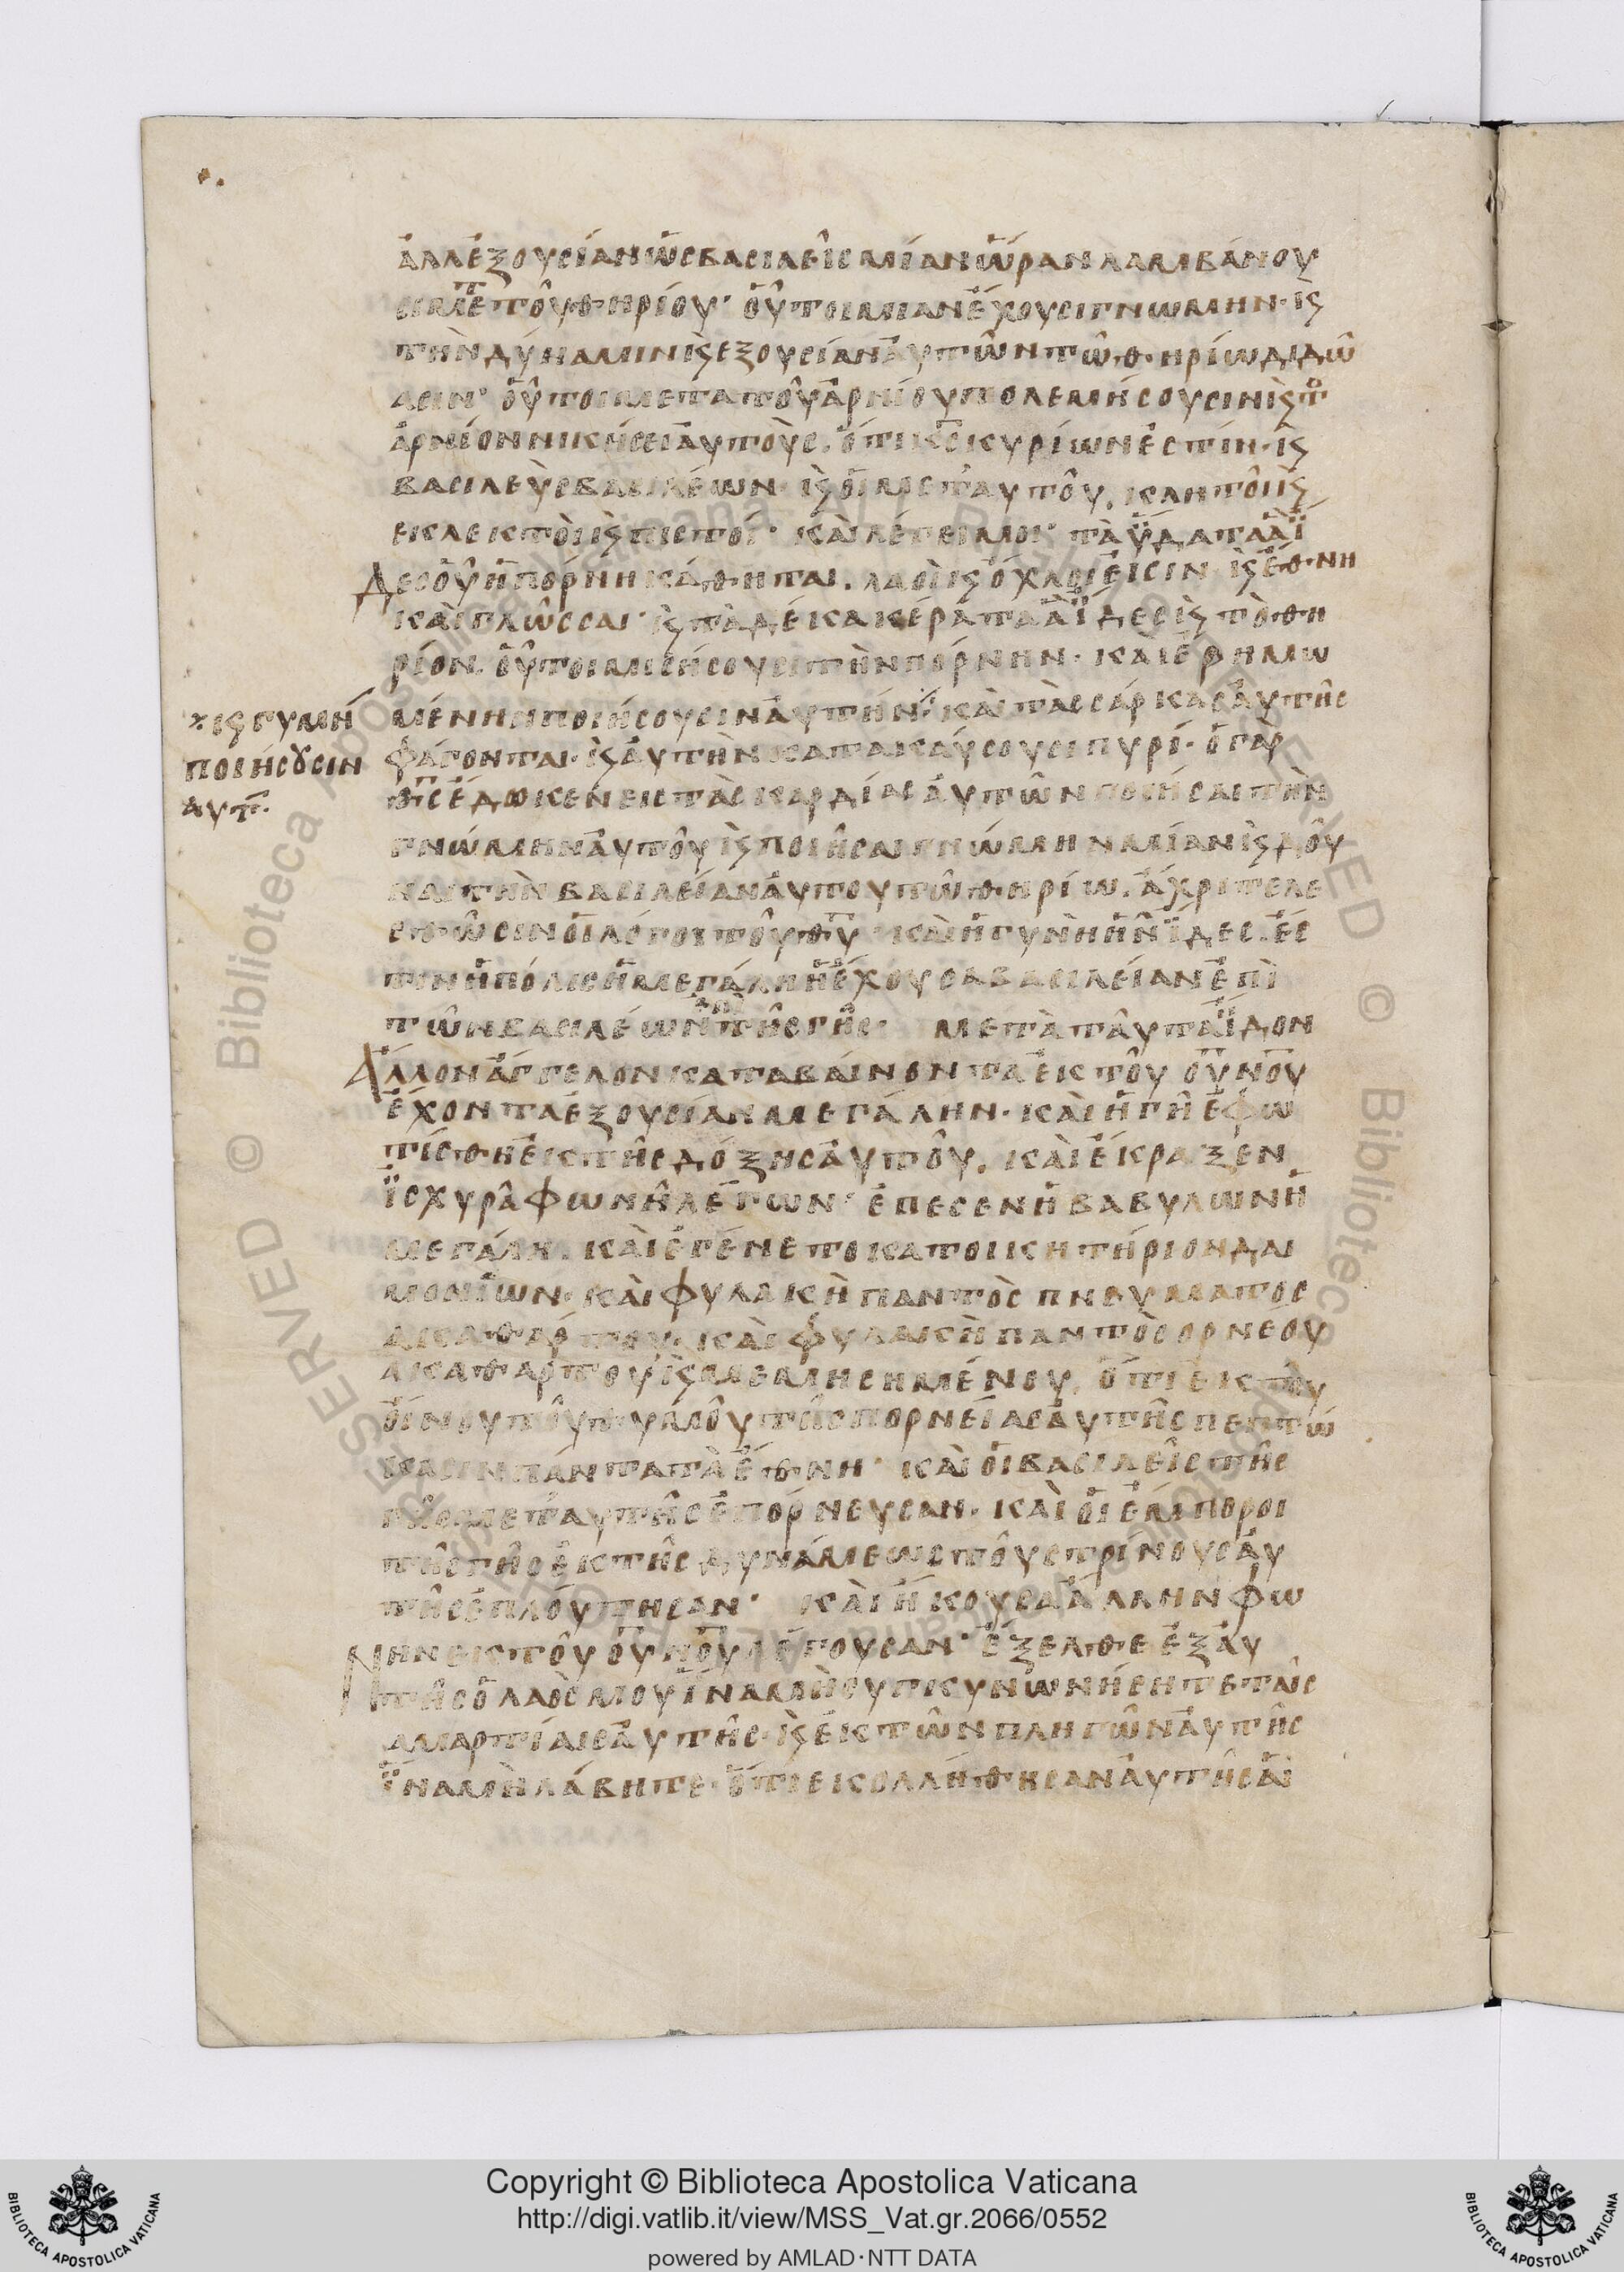 ἀλλ̓ἐξουσίαν ὡς βασιλεῖς μίαν ὥραν λαμβάνου
σι μετὰ τοῦ θηρίου· οὗτοι μίαν ἔχουσι γνωμην· ϗ
τὴν δύναμιν ϗ ἐξουσίαν ἀυτῶν τῶ θηρίω διδῶ
ασιν· οὗτοι μετα τοῦ ἀρνίου πολεμήσουσιν ϗ τὸ
ἀρνίον νικήσει ἀυτοὺς· ὅτι κ̅ς̅ κυρίων ἐστίν· ϗ
βασιλεὺς βασιλέων· ϗ οἱ μετ̓ ἀυτοῦ, κλητοὶ ϗ
εκλεκτοὶ ϗ πιστοί· καὶ λέγει μοι· τὰ ὕδατα ἃ ἴ
δες οὗ ἡ πόρνη κάθηται. λαοὶ ϗ ὄχλοι ἐισιν ϗ ἔθνη
καὶ γλῶσσαι· ϗ τὰ δέκα κέρατα ἃ ἴδες ϗ τὸ θη
ρίον. οὗτοι μισήσουσι τὴν πόρνην· και ἐρημω
μένην ποιήσουσιν ἀυτήν· καὶ τὰς σάρκας ἀυτῆς
ϗ γυμνὴ
ποιήσουσιν
αυτ̅
φάγονται· ϗ ἀυτὴν κατακάυσουσι πυρί· ὁ γὰρ
θ̅ς̅ ἔδωκεν εις τὰς καρδίας ἀυτῶν ποιῆσαι τὴν
γνώμην ἀυτοῦ ϗ ποιῆσαι γνώμην μίαν ϗ δοῦ
ναι τὴν βασιλείαν ἀυτου τῶ θηρίω. ἄχρι τελε
σθῶσιν οἱ λόγοι τοῦ θ̅υ̅· καὶ ἡ γυνὴ ἣν ἴδες. ἔσ
τιν ἡ πόλις ἡ μεγάλη ἡ ἔχουσα βασιλείαν ἐπὶ
τῶν βασιλέων ἐπὶ τῆς γῆς· μετὰ ταῦτα ἴδον
ἄλλον ἄγγελον καταβάινοντα ἐκ τοῦ ο̅υ̅ν̅ο̅υ̅
ἔχοντα ἐξουσίαν μεγάλην· καὶ ἡ γῆ ἐφω
τίσθη ἐκ τῆς δόξης ἀυτοῦ. καὶ ἔκραξεν
ἰσχυρᾶ φωνῆ λέγων· ἔπεσεν ἡ βαβυλων ἡ
μεγάλη. καὶ ἐγένετο κατοικητήριον δαι
μονίων· καὶ φυλακὴ παντὸς πνευματος
ακαθάρτου· καὶ φυλακὴ παντὸς ορνεου
ακαθαρτου ϗ μεμισημένου. ὅτι ἐκ τοῦ
οἴνου τοῦ θυμοῦ τῆς πορνείας ἀυτῆς πεπτώ
κασιν πάντα τὰ ἔθνη· καὶ οἱ βασιλεῖς τῆς
γῆς μετ̓ ἀυτῆς ἐπόρνευσαν· καὶ οἱ ἔμποροι
τῆς γῆς ἐκ τῆς δυνάμεως τοῦ στρίνους ἀυ
τῆς ἐπλούτησαν· καὶ ἤκουσα ἄλλην φω
νην εκ τοῦ ο̅υ̅ν̅ο̅υ̅ λέγουσαν· ἔξελθε ἐξ ἀυ
τῆς ὁ λαὸς μου ἵνα μὴ συγκυνωνήσητε ταῖς
αμαρτίαις ἀυτῆς· ϗ ἐκ τῶν πληγῶν ἀυτῆς
ἵνα μὴ λάβητε· ὅτι εκολλήθησαν ἀυτῆς ἁι
Copyright © Biblioteca Apostolica Vaticana
http://digi.vatlib.it/view/MSS_Vat.gr.2066/0552
powered by AMLAD·NTT DATA
BIBLIOTECA APOSTOLICA VATICANA
BIBLIOTECA APOSTOLICA VATICANA